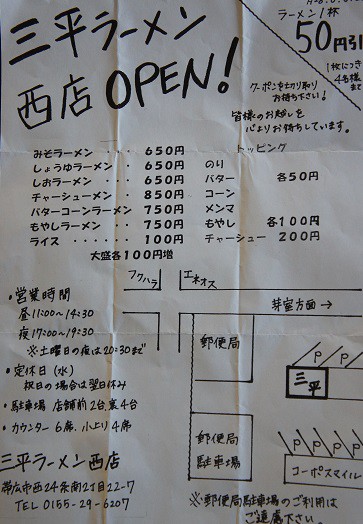 三平ラーメン
西店 OPEN!
ラーメン1杯
50円引
1枚につき
4名様
まで
クーポンを切り取り
お持ち下さい!
皆様のお越しを
心よりお待ちしています。
みそラーメン ・・ 650円
しょうゆラーメン ・・ 650円
しおラーメン ・・ 650円
チャーシューメン ・・ 850円
バターコーンラーメン ・・ 750円
もやしラーメン ・・ 750円
ライス ・・・・ 100円
大盛各100円増
トッピング
のり
バター 各50円
コーン
メンマ
もやし 各100円
チャーシュー 200円
フクハラ
エネオス
芽室方面→
郵便局
P P
三平
郵便局
駐車場
P P P P
コーポスマイル
・営業時間
昼11:00〜14:30
夜17:00〜19:30
※土曜日の夜は20:30まで
・定休日(水)
祝日の場合は翌日休み
・駐車場 店舗前2台、裏4台
・カウンター6席、小上り4席
三平ラーメン西店
帯広市西24条南2丁目22-7
TEL 0155-29-6207
※郵便局駐車場のご利用は
ご遠慮下さい。